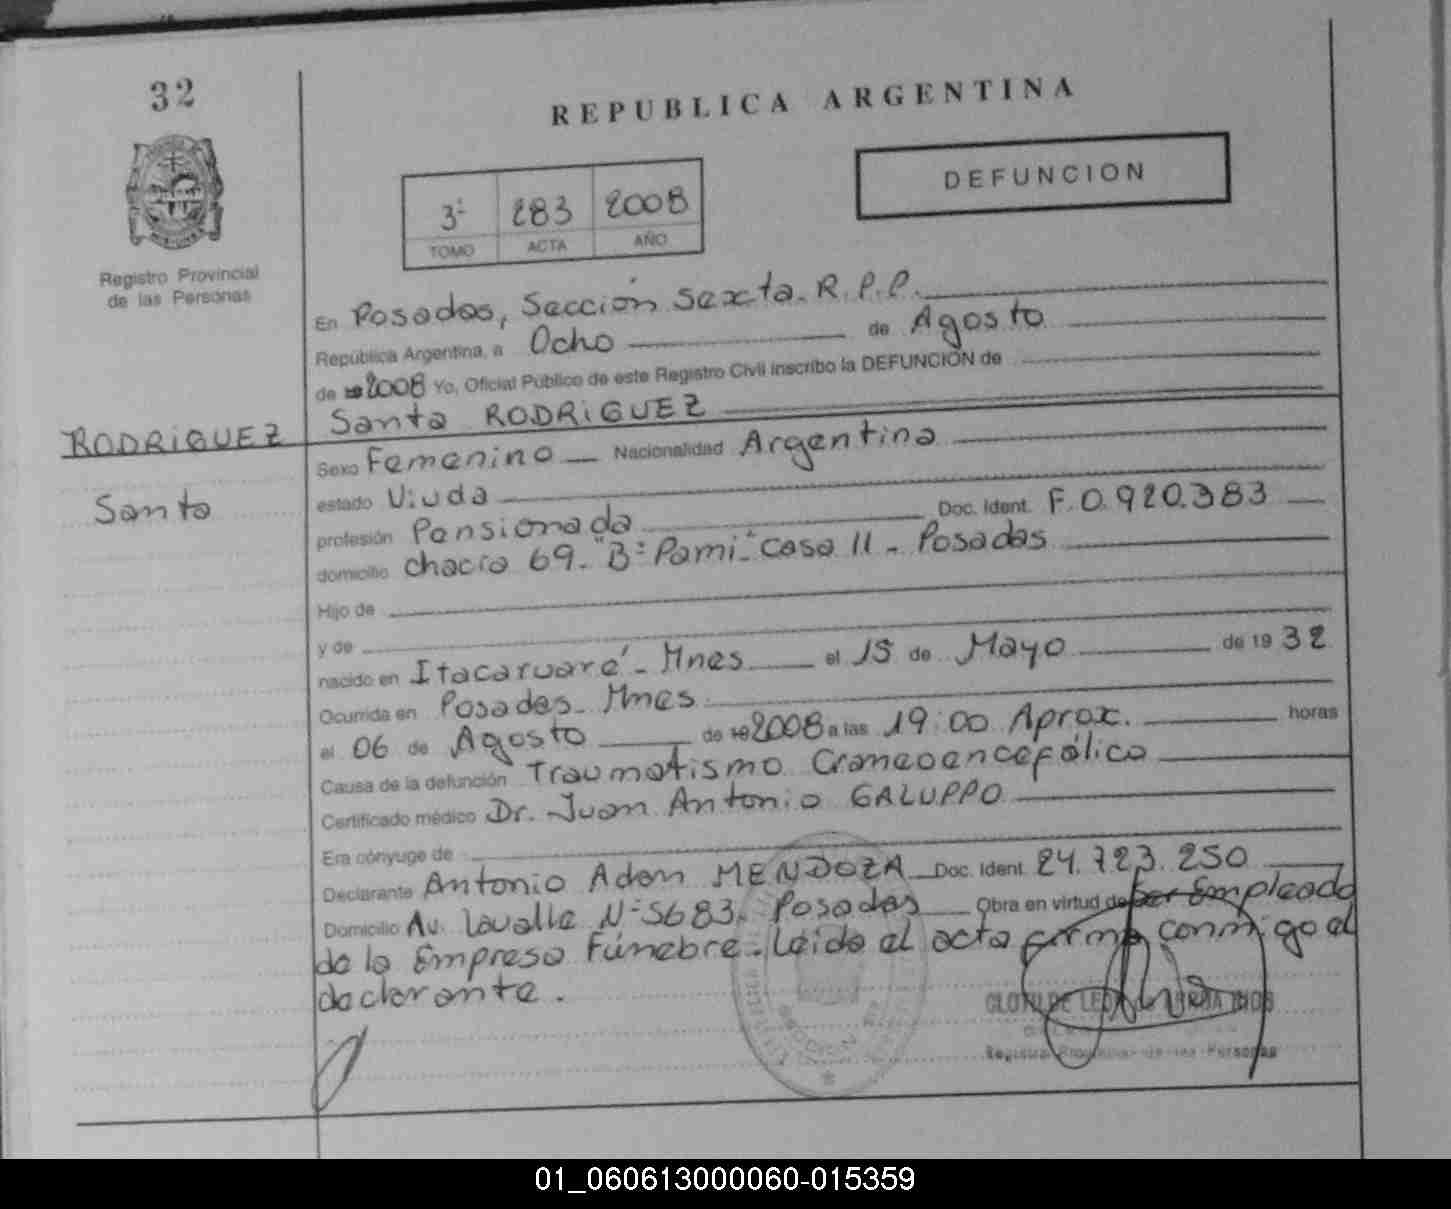 32
REPUBLICA ARGENTINA
DEFUNCION
3º 283 2008
TOMO ACTA AÑO
Registro Provincial
de las Personas
En Posadas, Sección Sexta. R.P.P.
República Argentina, a Ocho de Agosto
de 19 2008 Yo, Oficial Público de este Registro Civil inscribo la DEFUNCIÓN de
Santa RODRIGUEZ
RODRIGUEZ
Santa
Sexo Femenino Nacionalidad Argentina
estado Viuda
profesión Pensionada Doc. Ident. F. 0.920.383
domicilio chacra 69- "Bº Pami" casa 11 - Posadas
Hijo de
y de
nacido en Itacaruaré - Mnes el 15 de Mayo de 19 32
Ocurrida en Posadas - Mnes
el 06 de Agosto de 19 2008 a las 19:00 Aprox. horas
Causa de la defunción Traumatismo Craneoencefálico
Certificado médico Dr. Juan Antonio GALUPPO
Era cónyuge de
Declarante Antonio Adan MENDOZA Doc. Ident. 24.723.250
Domicilio Av. Lavalle Nº 5683. Posadas Obra en virtud de ser Empleado
de la Empresa Fúnebre. Leída el acta firma conmigo el
declarante.
Registro Provincial de las Personas
01_060613000060-015359